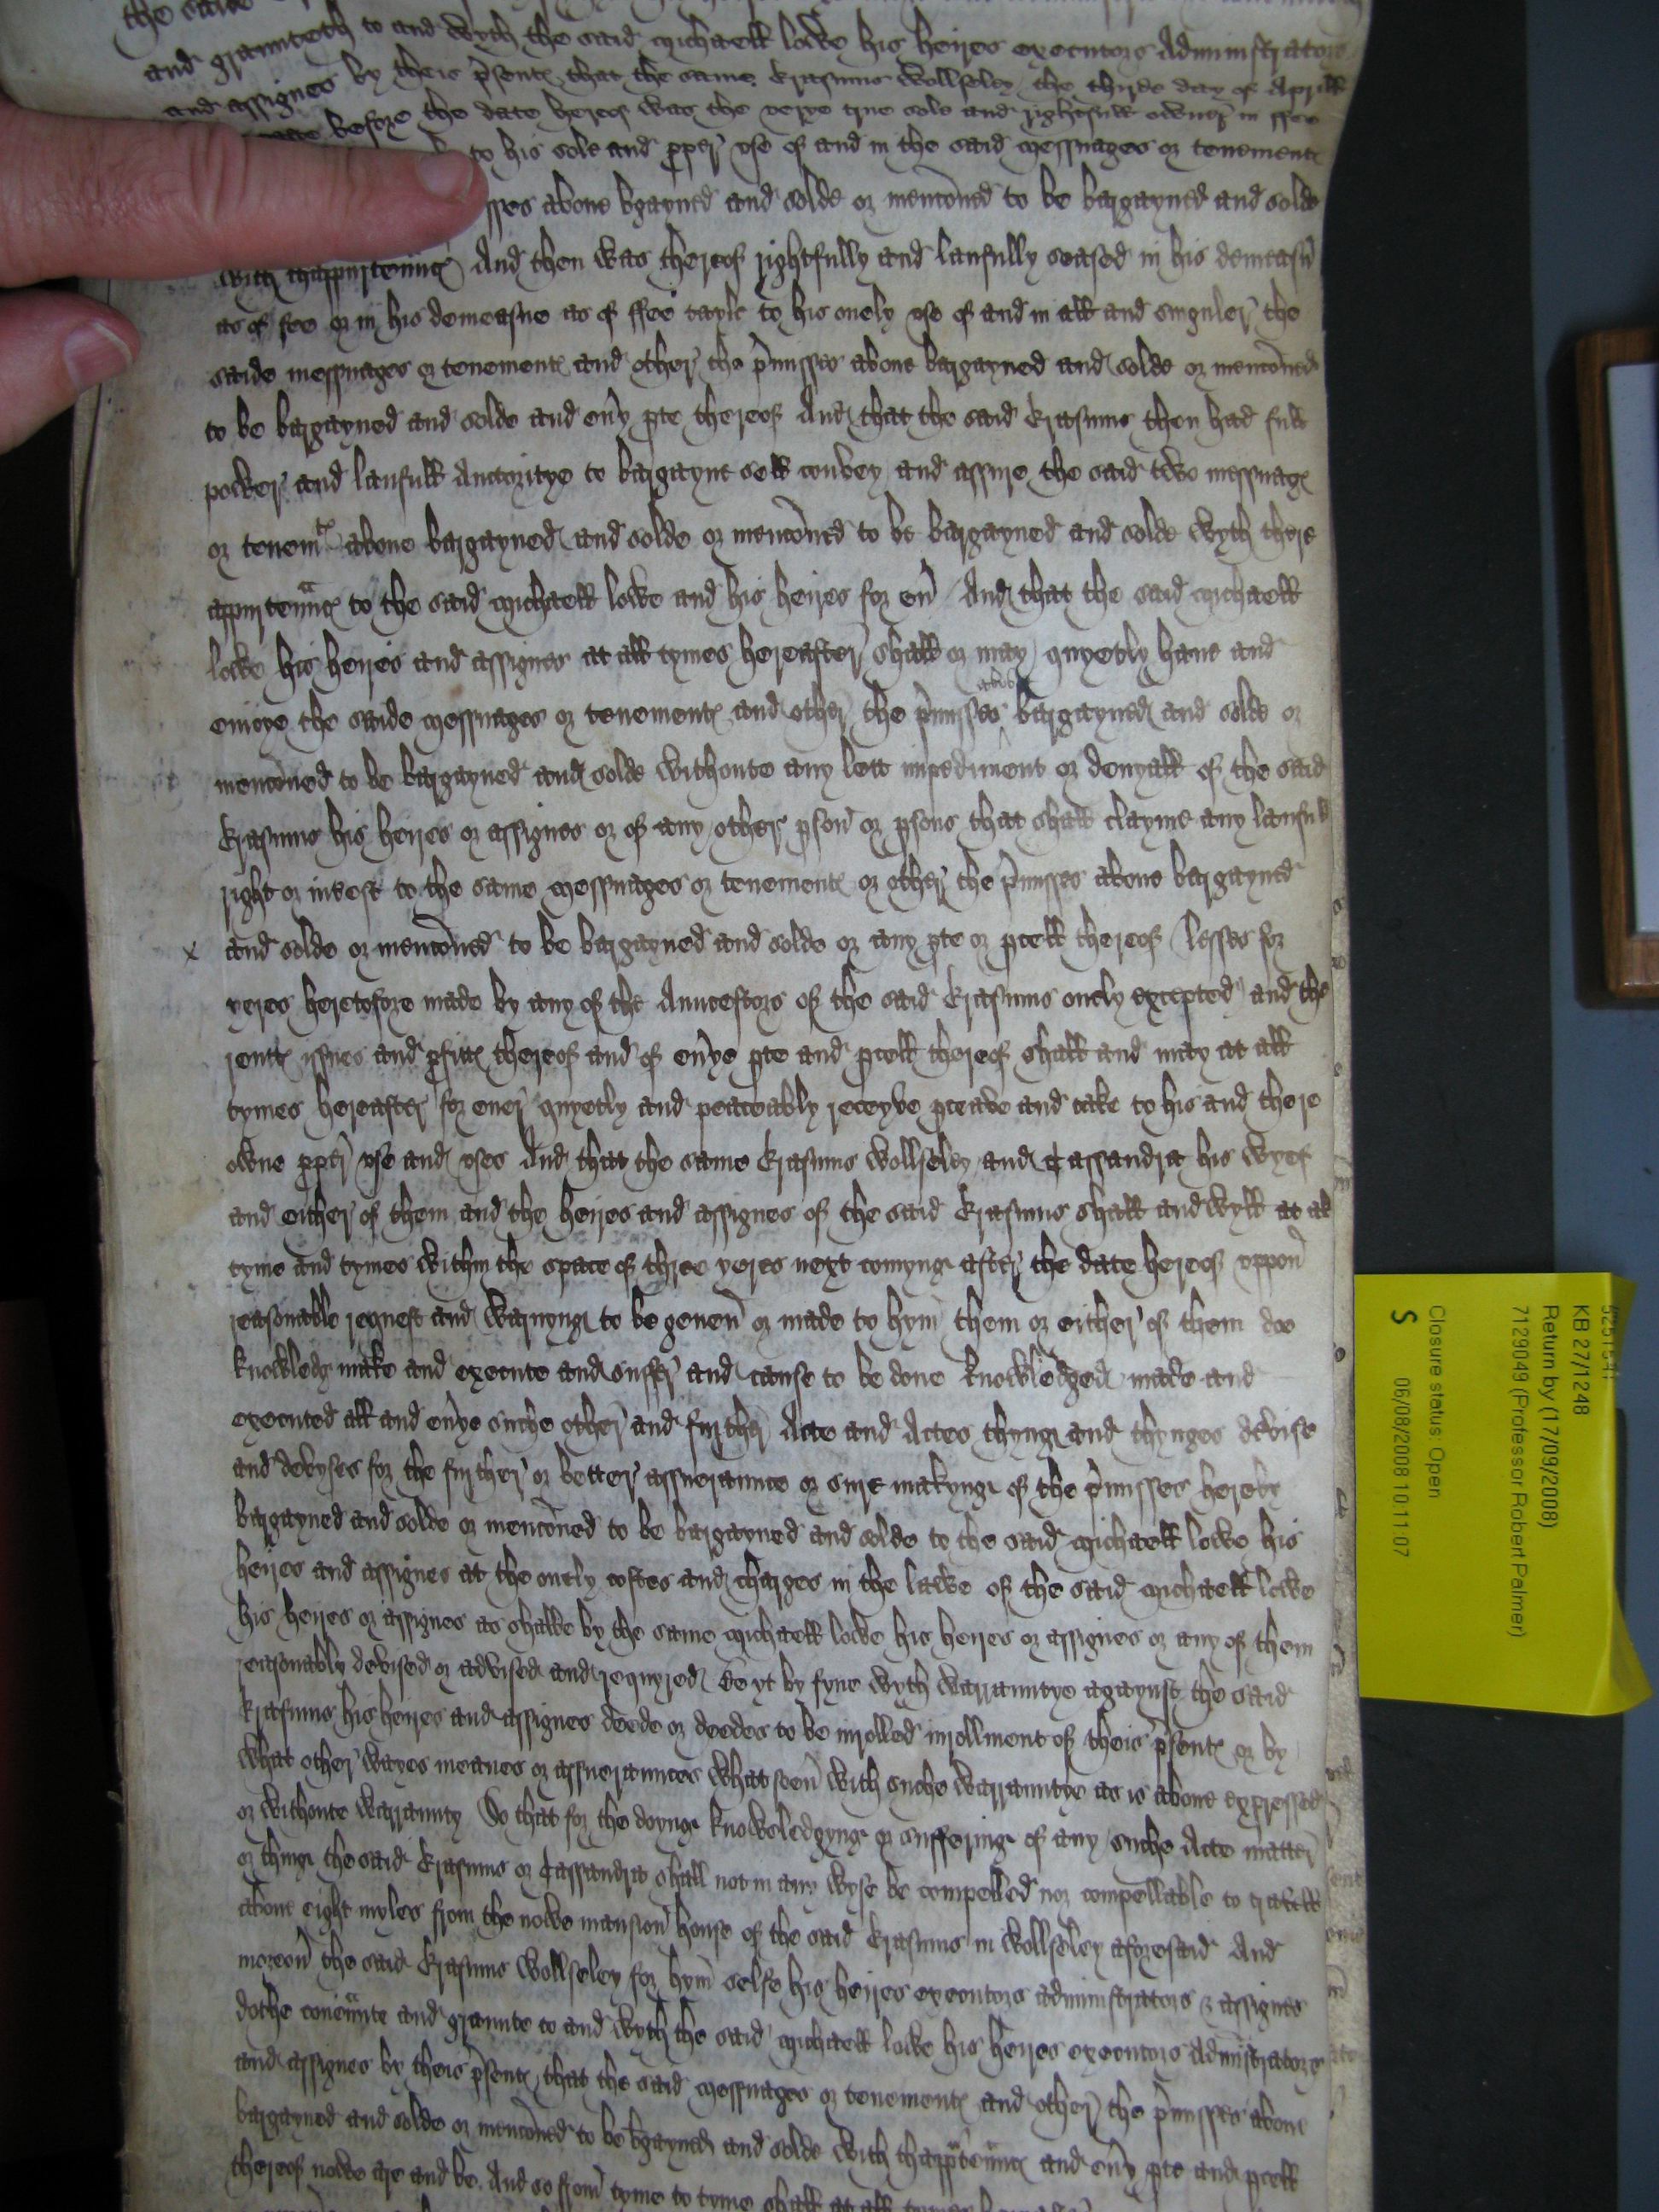 the said
and graunteth to and wyth the said Michaell Lowe his heires executors Administrators
and assignes by theis p̃sent℮ that the same Erasmus Wollseley the thirde day of Aprill
before the date hereof was the verye true sole and rightfull owner in ffee
to his sole and pper vse of and in the said messuages or tenement℮
sses aboue bgayned and solde or mencõned to be bargayned and solde
with thappurtenñc℮ And then was thereof rightfully and laufully seased in his demeasn̄
as of fee or in his demeasne as of ffee tayle to his onely vse of and in all and singuler the
saide messuages or tenement℮ and other the p̃misses aboue bargayned and solde or mencõned
to be bargayned and solde and eũy pte thereof And that the said Erasmus then had full
power and laufull Auctoritye to bargayne sell convey and assure the said two messuag℮
or tenem^t℮ aboue bargayned and solde or mencõned to be bargayned and solde wyth there
appurtenñc℮ to the said Michaell Lowe and his heires for eũ And that the said Michaell
Lowe his heires and assignes at all tymes hereafter shall or may quyetly haue and
enioye the saide messuages or tenement℮ and other the p̃misses above bargayned and solde or
mencõned to be bargayned and solde withoute any lett impediment or denyall of the said
Erasmus his heires or assignes or of any other pson or psons that shall clayme any laufull
right or int̃est to the same messuages or tenement℮ or other the p̃misses aboue bargayned
x and solde or mencõned to be bargayned and solde or any pte or pcell thereof (lesses for
yeres heretofore made by any of the Auncestors of the said Erasmus onely excepted) and the
rent℮ issues and pfitt℮ thereof and of eũye pte and pcell thereof shall and may at all
tymes hereafter for euer quyetly and peaceably receyve pceave and take to his and there
owne pper vse and vses And that the same Erasmus Wollseley and Cassandra his wyef
and either of them and the heires and assignes of the said Erasmus shall and wyll at all
tyme and tymes within the space of three yeres next comyng after the date hereof vppon
reasonable request and warnyng to be geuen or made to hym them or either of them doe
knowledg make and execute and suffer and cause to be done knowledged made and
executed all and eũye suche other and further Acte and Actes thyng and thynges devise
and devyses for the further or better assueraunce or sure makyng of the p̃misses hereby
bargayned and solde or mencõned to be bargayned and solde to the said Michaell Lowe his
heires and assignes at the onely costes and charges in the lawe of the said Michaell Lowe
his heires or assignes as shalbe by the same Michaell Lowe his heires or assignes or any of them
reasonably devised or advised and requyred be yt by fyne wyth warrauntye agaynst the said
Erasmus his heires and assignes deede or deedes to be inrolled inrollment of theis p̃sent℮ or by
what other wayes meanes or assueraunces what soeũ with suche warrauntye as is aboue expressed
or withoute warranty So that for the doyng knowledgyng or suffering of any suche Acte matter
or thing the said Erasmus or Cassandra shall not in any wyse be compelled nor compellable to travell
aboue eight myles from the nowe mansion house of the said Erasmus in Wollseley aforesaid And
moreoũ the said Erasmus Wollseley for hym selfe his heires executors administrators & assignes
dothe couenñte and graunte to and wyth the said Michaell Lowe his heires executors Administrators
and assignes by theis p̃sent℮ that the said messuages or tenement℮ and other the p̃misses aboue
bargayned and solde or mencõned to be bgayned and solde with thapptenñc℮ and eũy pte and pcell
thereof nowe are and be And so from tyme to tyme shall at all tymes
525154
KB 27/1248
Return by (17/09/2008)
7129049 (Professor Robert Palmer)
Closure status: Open
06/08/2008 10:11:07
S